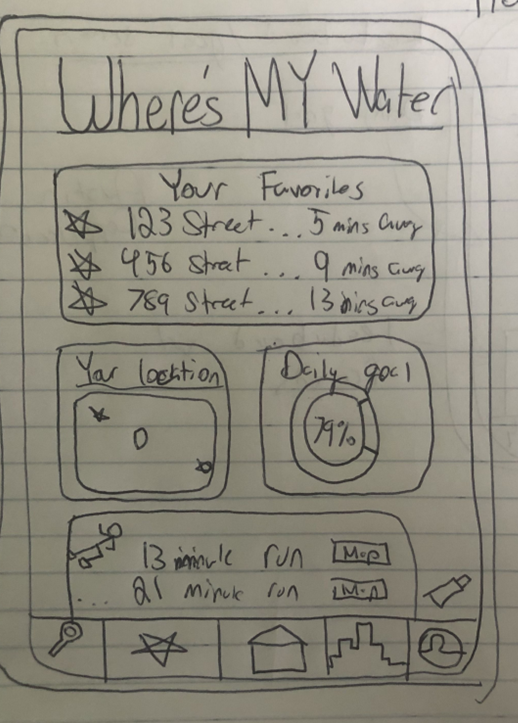 Where's MY Water
Your Favorites
123 Street... 5 mins away
456 Street ... 9 mins away
789 Street... 13 mins away
Your location
Daily goal
79%
13 minute run Map
... 21 minute run Map